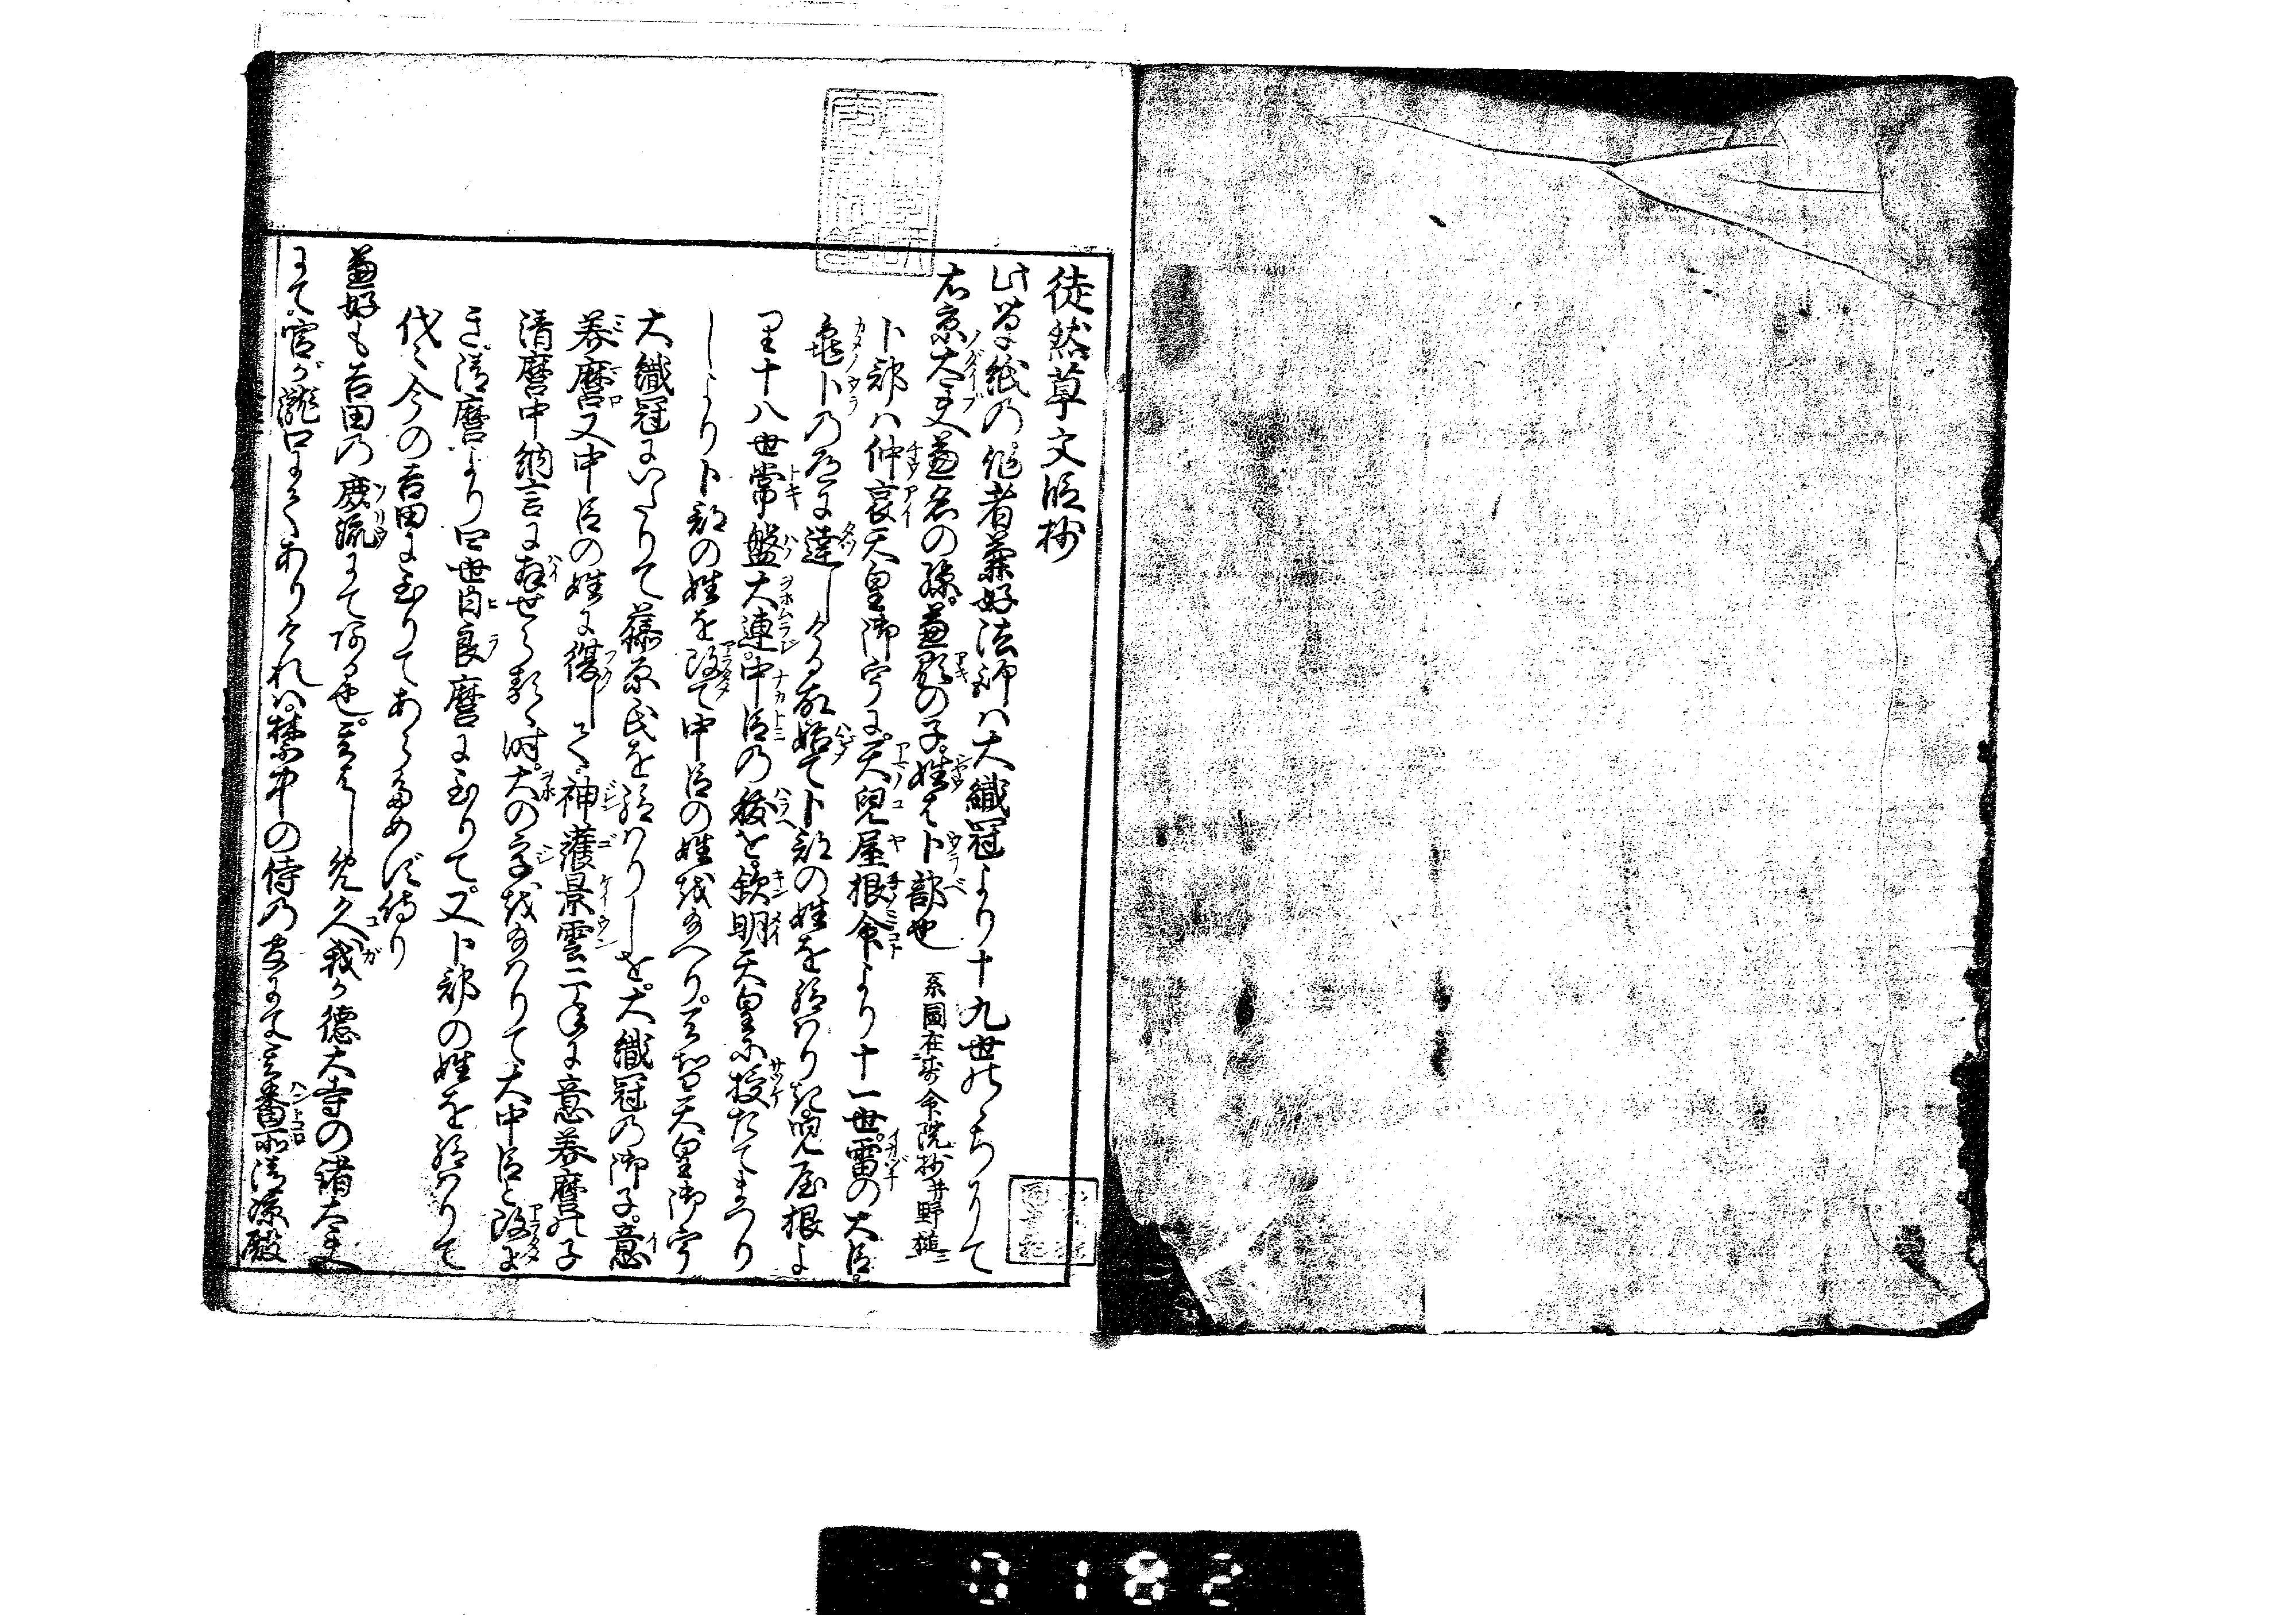 徒然草文段抄
此草紙の作者兼好法師ハ大織冠より十九世にあたりて
右京大夫兼名の孫。兼顕の子。姓は卜部也 系図在壽命院抄并野槌ニ
卜部ハ仲哀天皇御宇に。天兒屋根命より十一世。雷の大臣。
亀卜の道に達しける故。始て卜部の姓を給ハり。兒屋根よ
り十八世常盤大連。中臣の祓を。欽明天皇に授たてまつり
しより卜部の姓を改て中臣の姓を給へり。天智天皇御宇
大織冠にいたりて藤原氏を給ハりしを。大織冠の御子。意
美麿又中臣の姓に復して。神護景雲二年に意美麿の子
清麿中納言に拝せらるゝ時。大の字を給ハりて大中臣と改よ
き。清麿より四世日良麿に至りて又卜部の姓を給ハりて
代々今の吉田に至りてあらためず侍り
兼好も吉田の庶流にて侍る也。 久我か徳大寺の諸大夫
にて。官が瀧口にてありければ。禁中の侍の にて 番所清涼殿
0182